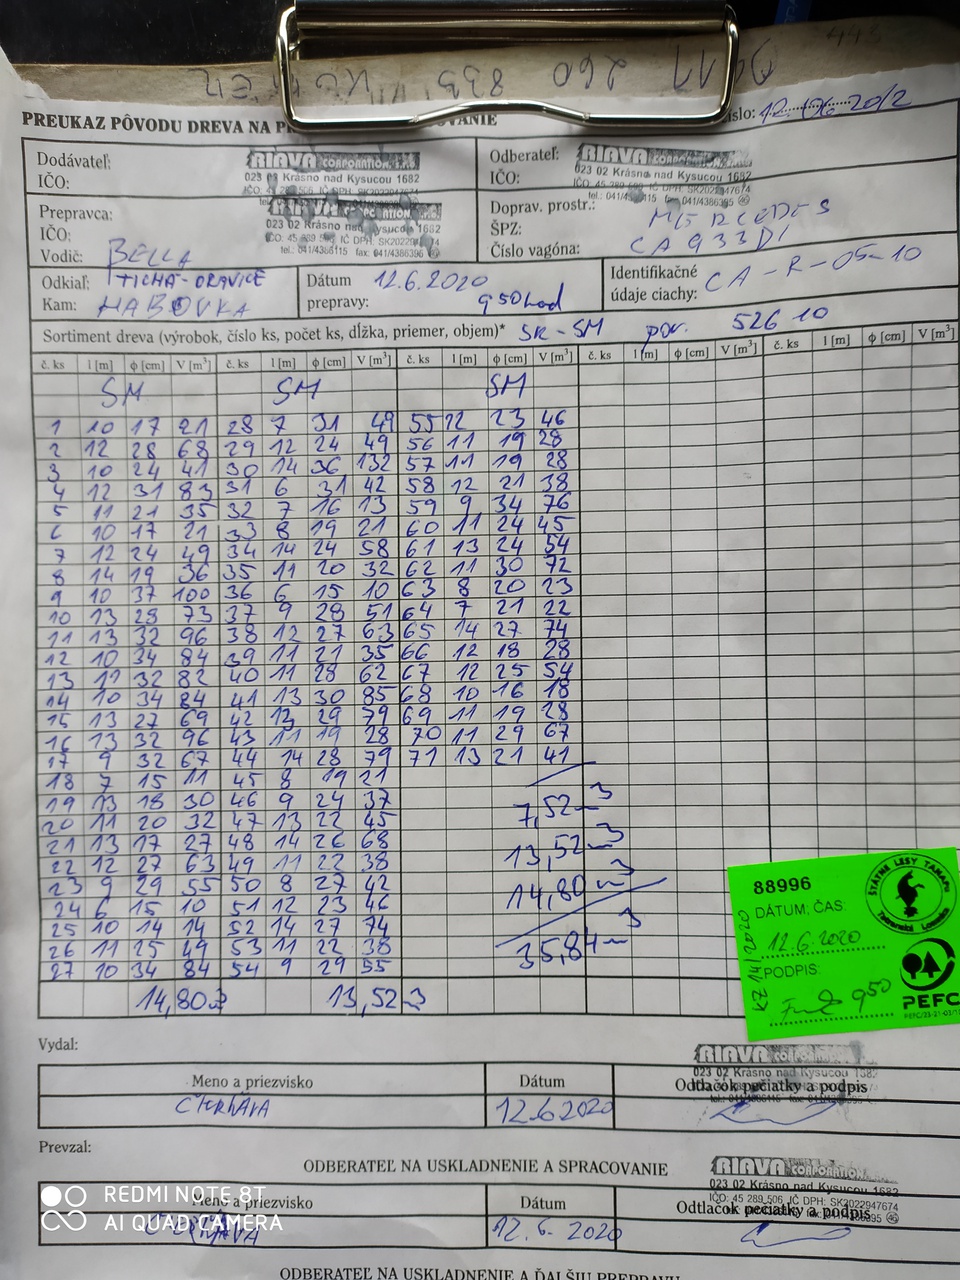 0911 260 833 443
PREUKAZ PÔVODU DREVA NA PR
OVANIE
íslo: 12.06.20/2
Dodávateľ:
IČO:
RIAVA CORPORATION, s.r.o.
023 02 Krásno nad Kysucou 1682
IČO: 45 289 506, IČ DPH: SK2022947674
Odberateľ:
IČO:
RIAVA CORPORATION, s.r.o.
023 02 Krásno nad Kysucou 1682
IČO: 45 289 506, IČ DPH: SK2022947674
tel.: 041/4386115 fax: 041/4386395
Prepravca:
IČO:
Vodič: BELLA
RIAVA CORPORATION, s.r.o.
023 02 Krásno nad Kysucou 1682
IČO: 45 289 506, IČ DPH: SK2022947674
tel.: 041/4386115 fax: 041/4386395
Doprav. prostr.: MERCEDES
ŠPZ: CA933DI
Číslo vagóna:
Odkiaľ: TICHÁ-ORAVICE
Kam: HABOVKA
Dátum 12.6.2020
prepravy: 9 50 hod
Identifikačné
údaje ciachy: CA-R-05-10
Sortiment dreva (výrobok, číslo ks, počet ks, dĺžka, priemer, objem)* SK-SM por. 526 10
č. ks l [m] ϕ [cm] V [m³] č. ks l [m] ϕ [cm] V [m³] č. ks l [m] ϕ [cm] V [m³] č. ks l [m] ϕ [cm] V [m³] č. ks l [m] ϕ [cm] V [m³]
SM SM SM
1 10 17 21 28 7 31 49 55 12 23 46
2 12 28 68 29 12 24 49 56 11 19 28
3 10 24 41 30 14 36 132 57 11 19 28
4 12 31 83 31 6 31 42 58 12 21 38
5 11 21 35 32 7 16 13 59 9 34 76
6 10 17 21 33 8 19 21 60 11 24 45
7 12 24 49 34 14 24 58 61 13 24 54
8 14 19 36 35 11 20 32 62 11 30 72
9 10 37 100 36 6 15 10 63 8 20 23
10 13 28 73 37 9 28 51 64 7 21 22
11 13 32 96 38 12 27 63 65 14 27 74
12 10 34 84 39 11 21 35 66 12 18 28
13 11 32 82 40 11 28 62 67 12 25 54
14 10 34 84 41 13 30 85 68 10 16 18
15 13 27 69 42 13 29 79 69 11 19 28
16 13 32 96 43 11 19 28 70 11 29 67
17 9 32 67 44 14 28 79 71 13 21 41
18 7 15 11 45 8 19 21
19 13 18 30 46 9 24 37
20 11 20 32 47 13 22 45
21 13 17 27 48 14 26 68
22 12 27 63 49 11 22 38
23 9 29 55 50 8 27 42
24 6 15 10 51 12 23 46
25 10 14 14 52 14 27 74
26 11 25 49 53 11 22 38
27 10 34 84 54 9 29 55
7,52 m3
13,52 m3
14,80 m3
35,84 m3
14,80 m3 13,52 m3
88996
DÁTUM; ČAS:
12.6.2020
PODPIS:
950
KZ 14/2020
ŠTÁTNE LESY TANAPU
Tatranská Lomnica
PEFC
Vydal:
RIAVA CORPORATION
023 02 Krásno nad Kysucou 1682
Meno a priezvisko Dátum Odtlačok pečiatky a podpis
12.6.2020
Prevzal:
ODBERATEĽ NA USKLADNENIE A SPRACOVANIE
RIAVA CORPORATION, s.r.o.
023 02 Krásno nad Kysucou 1682
IČO: 45 289 506, IČ DPH: SK2022947674
Meno a priezvisko Dátum Odtlačok pečiatky a podpis
12.6.2020
ODBERATEĽ NA USKLADNENIE A ĎALŠIU PREPRAVU
REDMI NOTE 8T
AI QUAD CAMERA